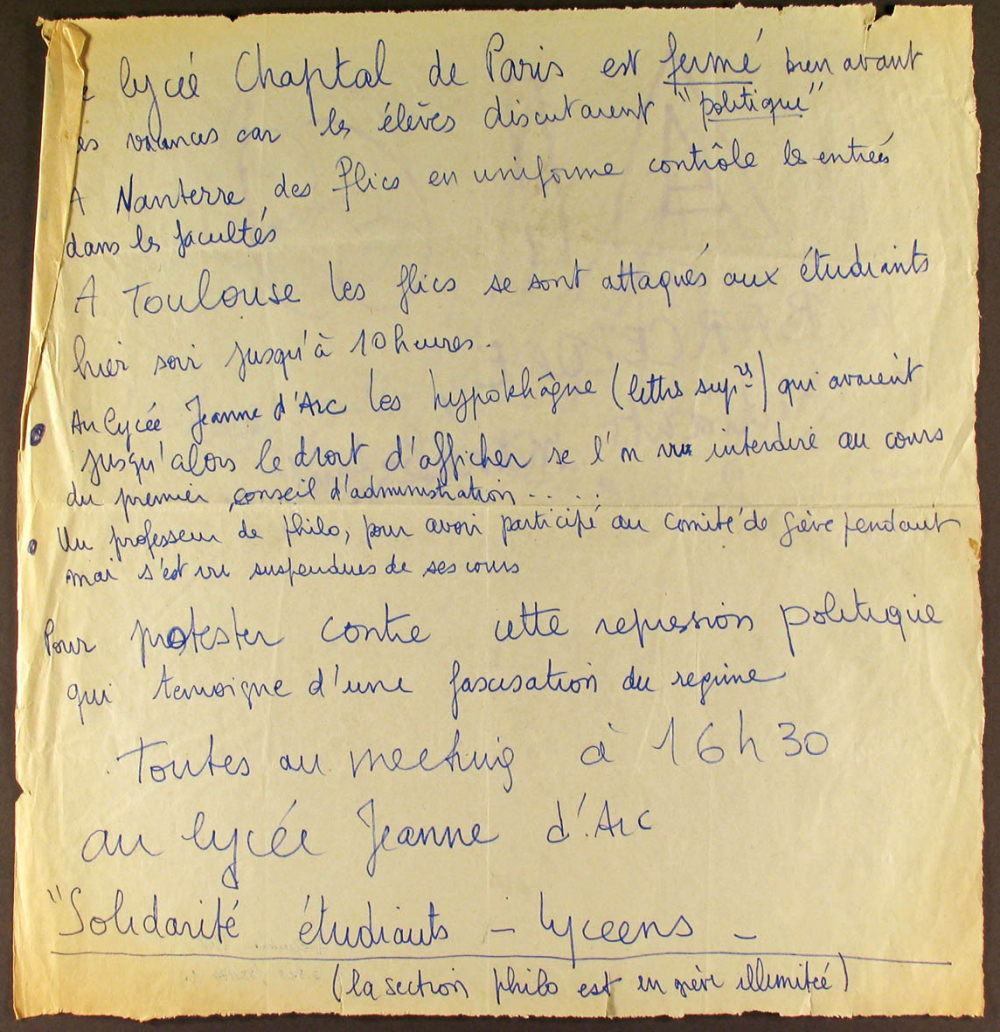 lycée Chaptal de Paris est fermé bien avant
es vacances car les élèves discutaient "politique"
A Nanterre des flics en uniforme contrôle les entrées
dans les facultés
A Toulouse les flics se sont attaqués aux étudiants
hier soir jusqu'à 10 heures.
Au lycée Jeanne d'Arc les hypokhâgne (lettres sup res) qui avaient
jusqu'alors le droit d'afficher se l' vu interdire au cours
du premier conseil d'administration.....
Un professeur de philo, pour avoir participé au comité de grève pendant
mai s'est vu suspendues de ses cours
Pour protester contre cette repression politique
qui temoigne d'une fascisation du regime
Toutes au meeting à 16h30
au lycée Jeanne d'Arc
"Solidarité étudiants - lyceens -
(la section philo est en grève illimitée)